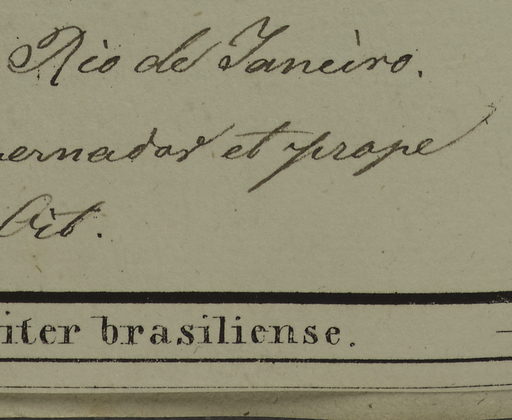 Rio de Janeiro.
ernador et prope
Oct.
iter brasiliense.